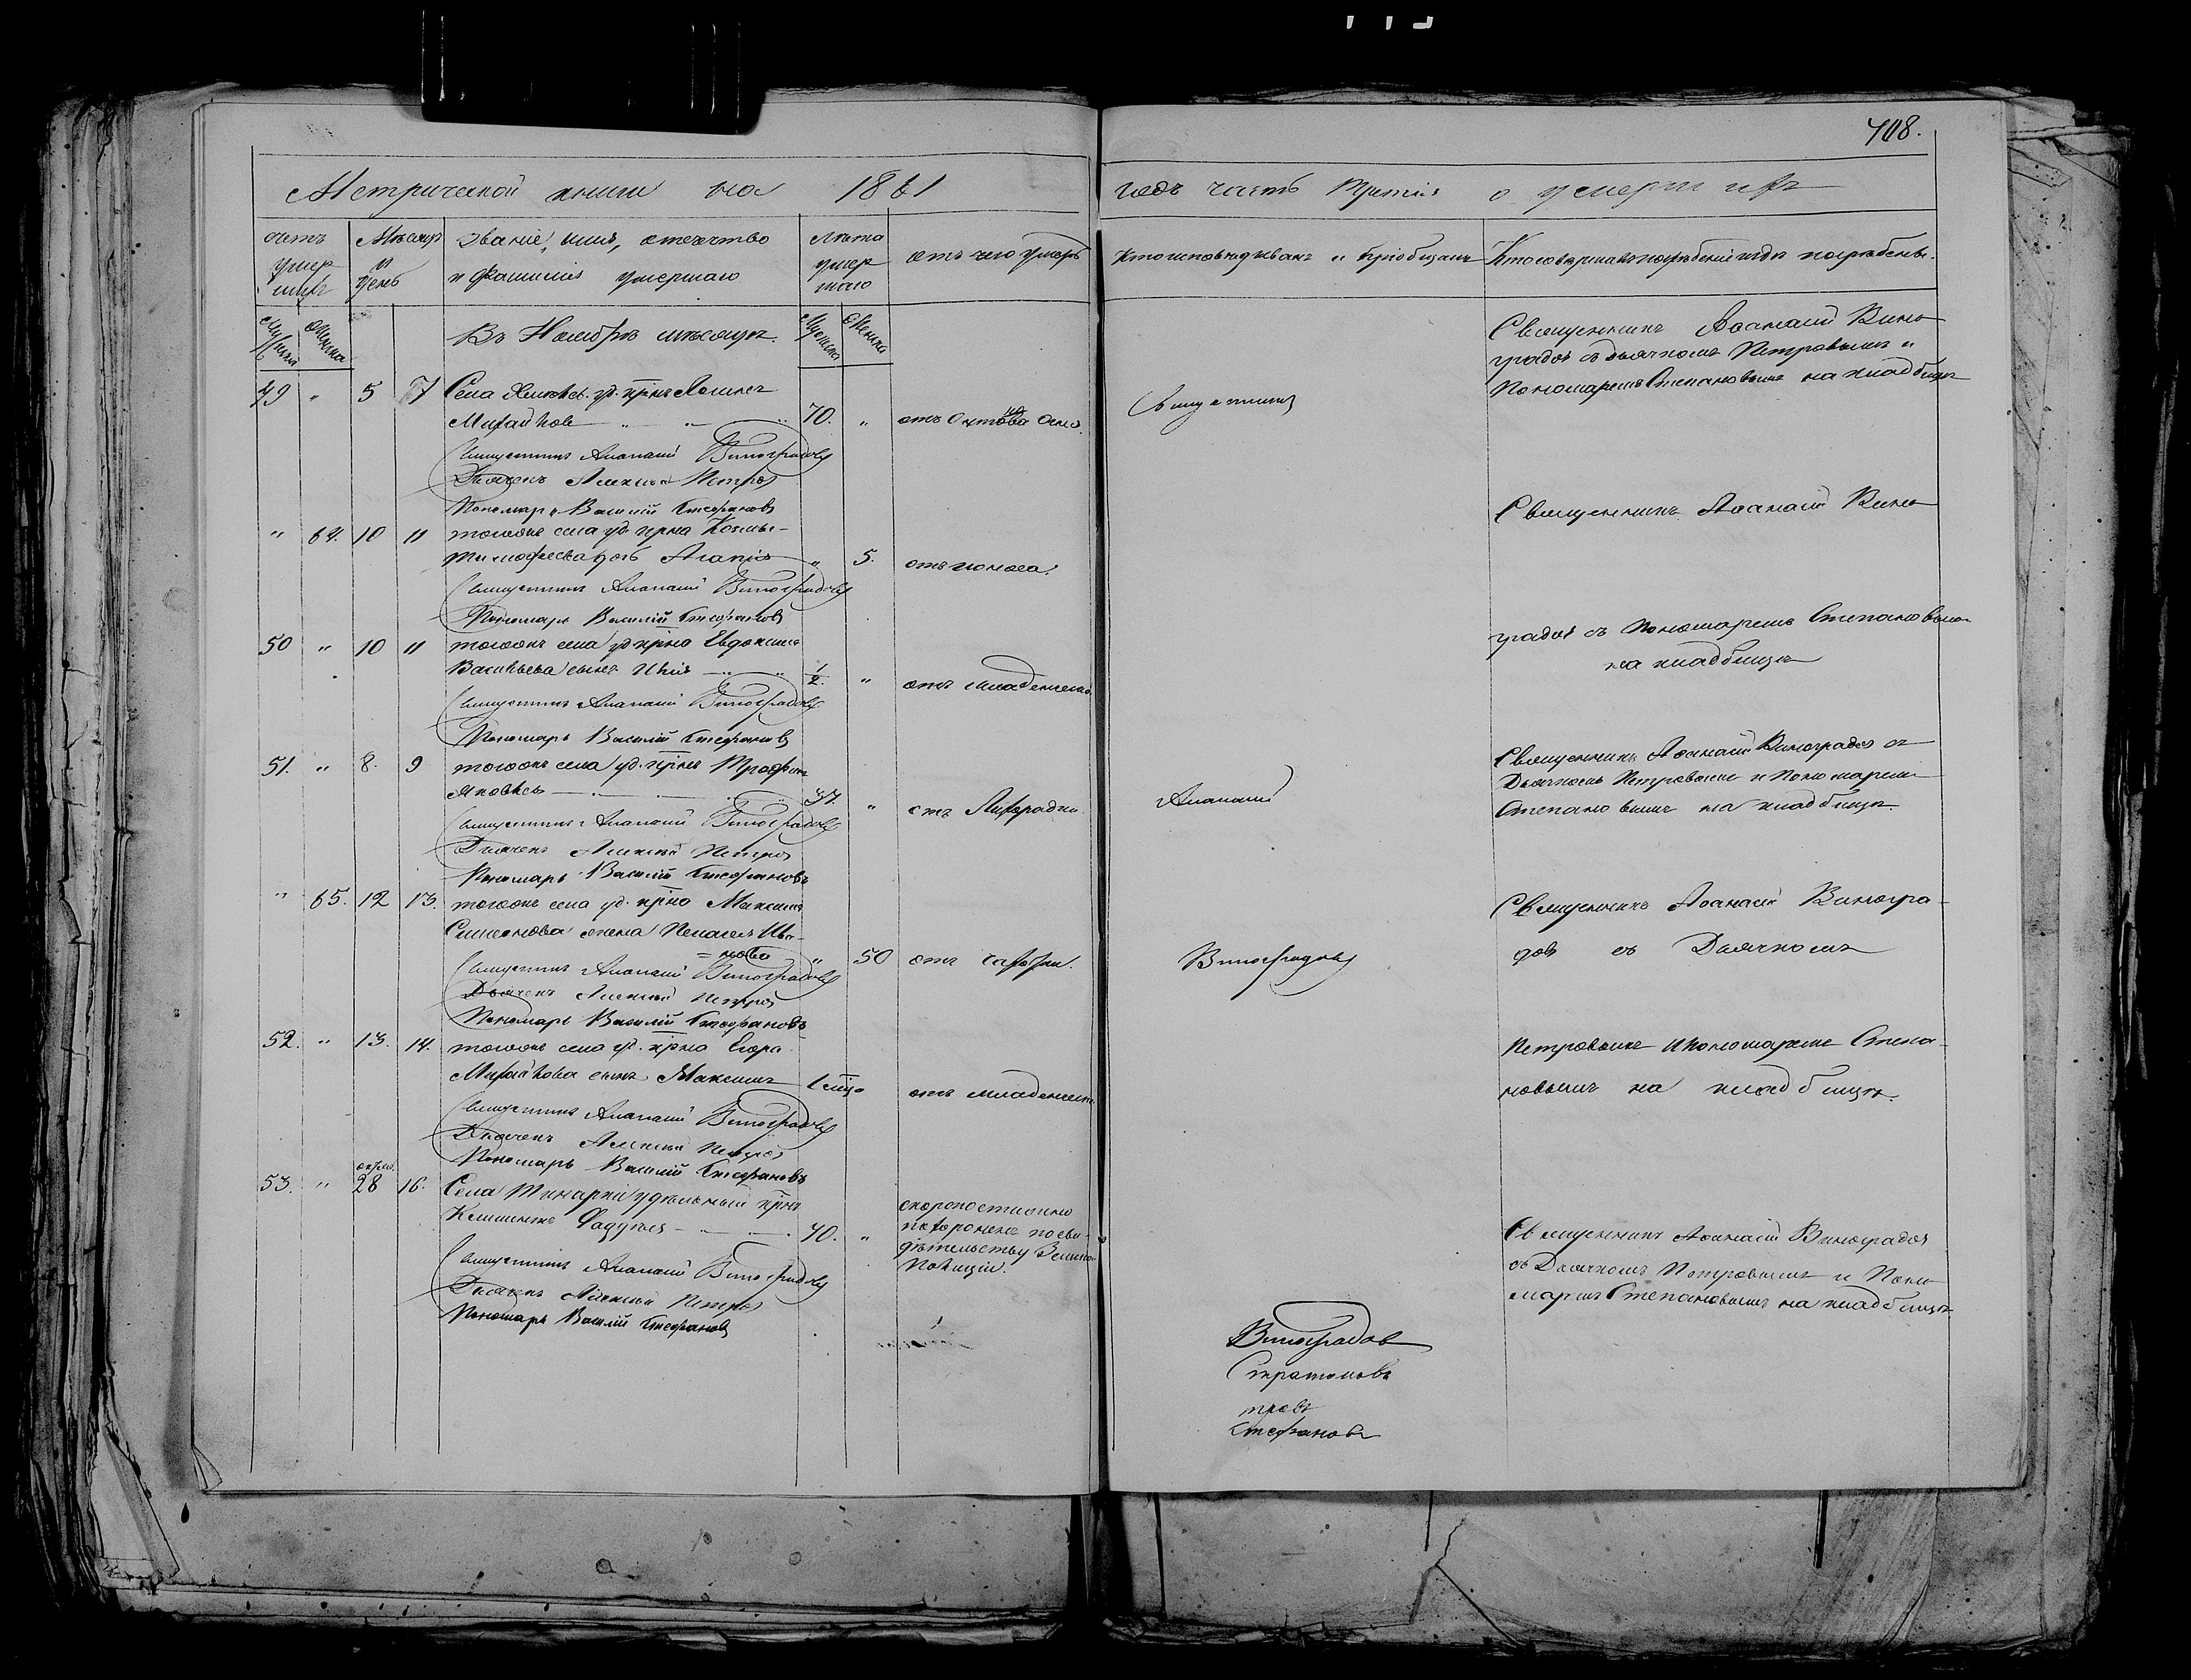 408.
Метрической книги на 1861 годъ часть третія о умершихъ
счетъ умершихъ
Мѣсяцъ и день
званіе, имя, отечество и фамилія умершаго
лѣта умершаго
отъ чего умеръ
кто исповѣдывалъ и пріобщалъ
Кто совершалъ погребеніе и гдѣ погребены.
Мужска
Женска
Въ Ноябрѣ мѣсяцѣ.
Мужска
Женска
49 " 5 7 Села уд. кр-нъ
Михайловъ 70. "
Священникъ
Священникъ Аѳанасій Вино
градовъ съ дьячкомъ Петровымъ и
Пономаремъ Степановымъ на кладбищѣ
Священникъ Аѳанасій Виноградовъ
Дьячекъ Алексѣй Петровъ
Пономарь Василій Стефановъ
" 64. 10 11 тогоже села уд. кр-на Козмы
Тимофеева дочь " 5. отъ поноса.
Священникъ Аѳанасій Вино
Священникъ Аѳанасій Виноградовъ
Пономарь Василій Стефановъ
50 " 10 11 тогоже села уд. кр-на Евдокима
Васильева сынъ Илія 1/2. " отъ младенческ.
градовъ съ Пономаремъ Степановымъ
на кладбищѣ
Священникъ Аѳанасій Виноградовъ
Пономарь Василій Стефановъ
51. " 8. 9 тогоже села уд. кр-нъ Трофимъ
Яковлевъ 37. " отъ Лихорадки.
Аѳанасій
Священникъ Аѳанасій Виноградовъ съ
Дьячкомъ Петровымъ и Пономаремъ
Степановымъ на кладбищѣ.
Священникъ Аѳанасій Виноградовъ
Дьячекъ Алексѣй Петровъ
Пономарь Василій Стефановъ
" 65. 12 13. тогоже села уд. кр-на Максима
Симеонова жена Пелагея Ива-
нова " 50 отъ чахотки.
Виноградовъ
Священникъ Аѳанасій Виногра-
довъ съ Дьячкомъ
Священникъ Аѳанасій Виноградовъ
Дьячекъ Алексѣй Петровъ
Пономарь Василій Стефановъ
52. " 13. 14. тогоже села уд. кр-на Егора
Михайлова сынъ Максимъ отъ младенческ.
Петровымъ и пономаремъ Степа-
новымъ на кладбищѣ.
Священникъ Аѳанасій Виноградовъ
Дьячекъ Алексѣй Петровъ
Пономарь Василій Стефановъ
53. " 28 16. Села удѣльный кр-нъ
40. " скоропостижно
похороненъ по сви-
дѣтельству Земской
Полиціи.
Священникъ Аѳанасій Виноградовъ
съ Дьячкомъ Петровымъ и Поно
маремъ Степановымъ на кладбищѣ
Священникъ Аѳанасій Виноградовъ
Дьячекъ Алексѣй Петровъ
Пономарь Василій Стефановъ
Виноградов
Стефановъ